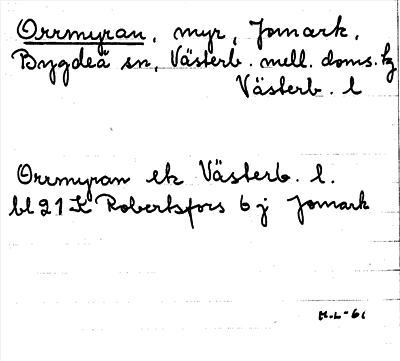 Orrmyran, myr, Jomark,
Bygdeå sn, Västerb. mell. doms. hg
Västerb. l
Orrmyran ek Västerb. l.
bl 21 K Robertsfors 6 j Jomark
H.L-61